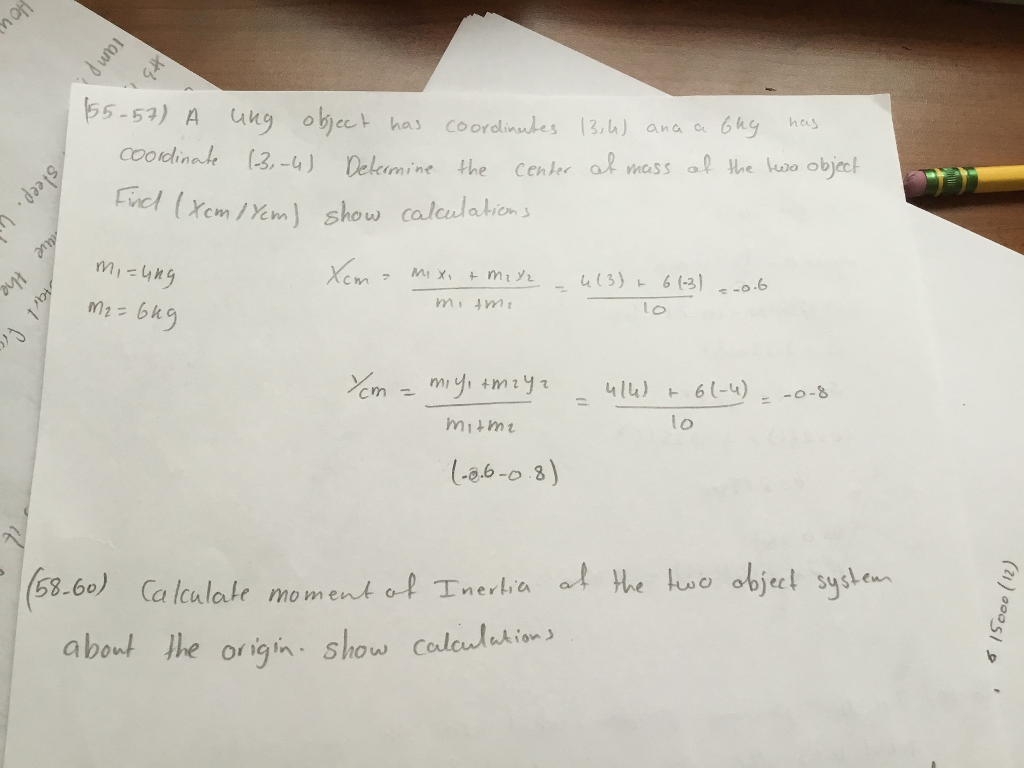 (55-57) A 4kg object has coordinates (3,4) and a 6kg has
coordinate (-3,-4) Determine the center of mass of the two object
Find (Xcm/Ycm) show calculations
m1 = 4kg
m2 = 6kg
Xcm = m1x1 + m2x2 / m1+m2 = 4(3) + 6(-3) / 10 = -0.6
Ycm = m1y1 + m2y2 / m1+m2 = 4(4) + 6(-4) / 10 = -0.8
(-0.6-0.8)
(58-60) Calculate moment of Inertia of the two object system
about the origin. show calculations
15000(12)
lamp
sleep.
the